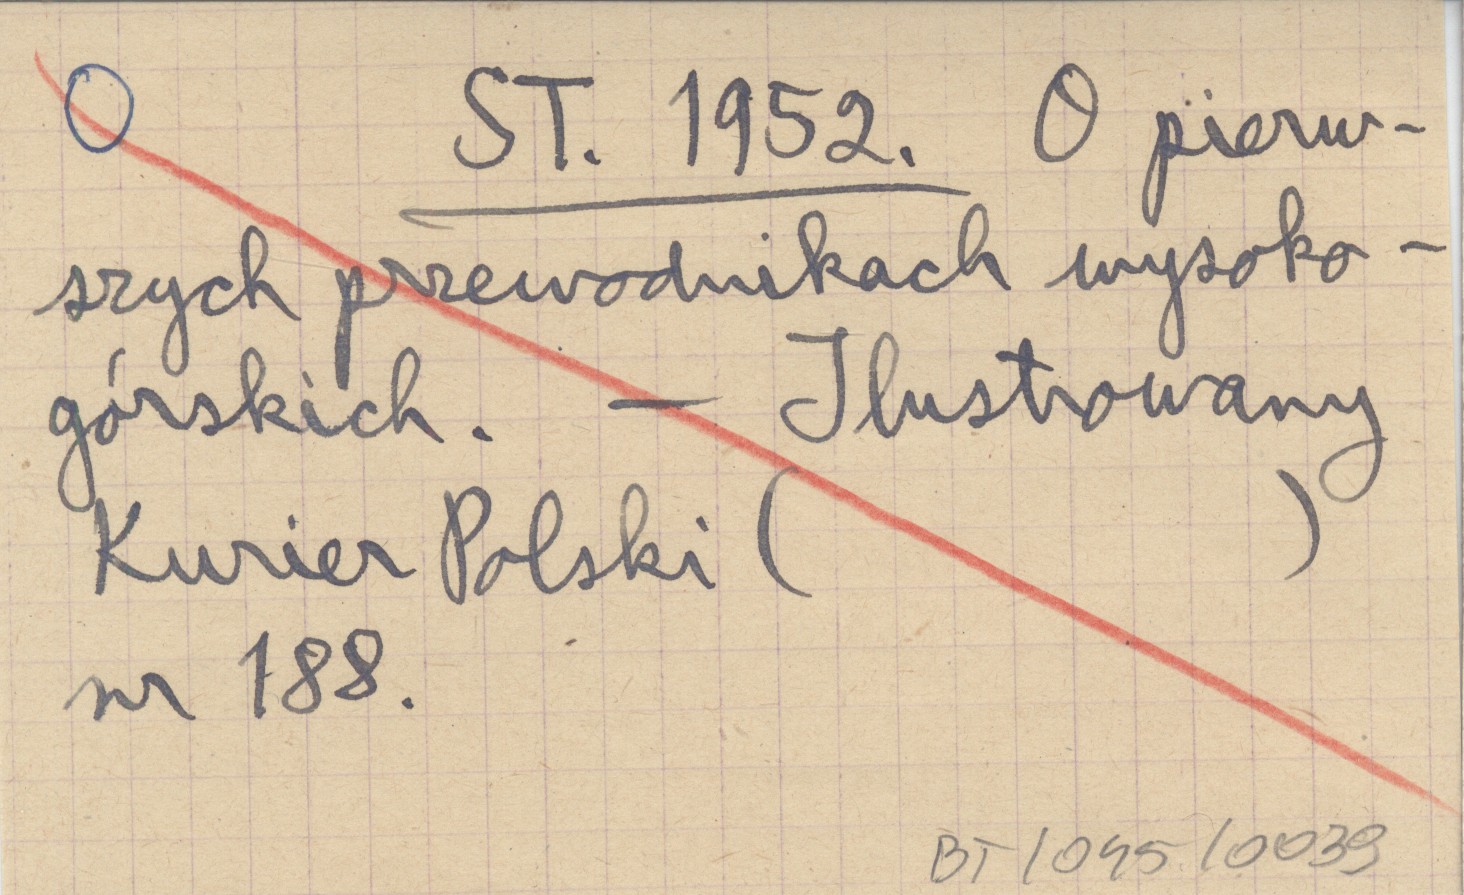 O ST. 1952. O pierw-
szych przewodnikach wysoko-
górskich. — Ilustrowany
Kurier Polski ( )
nr 188.
BT/045/0039